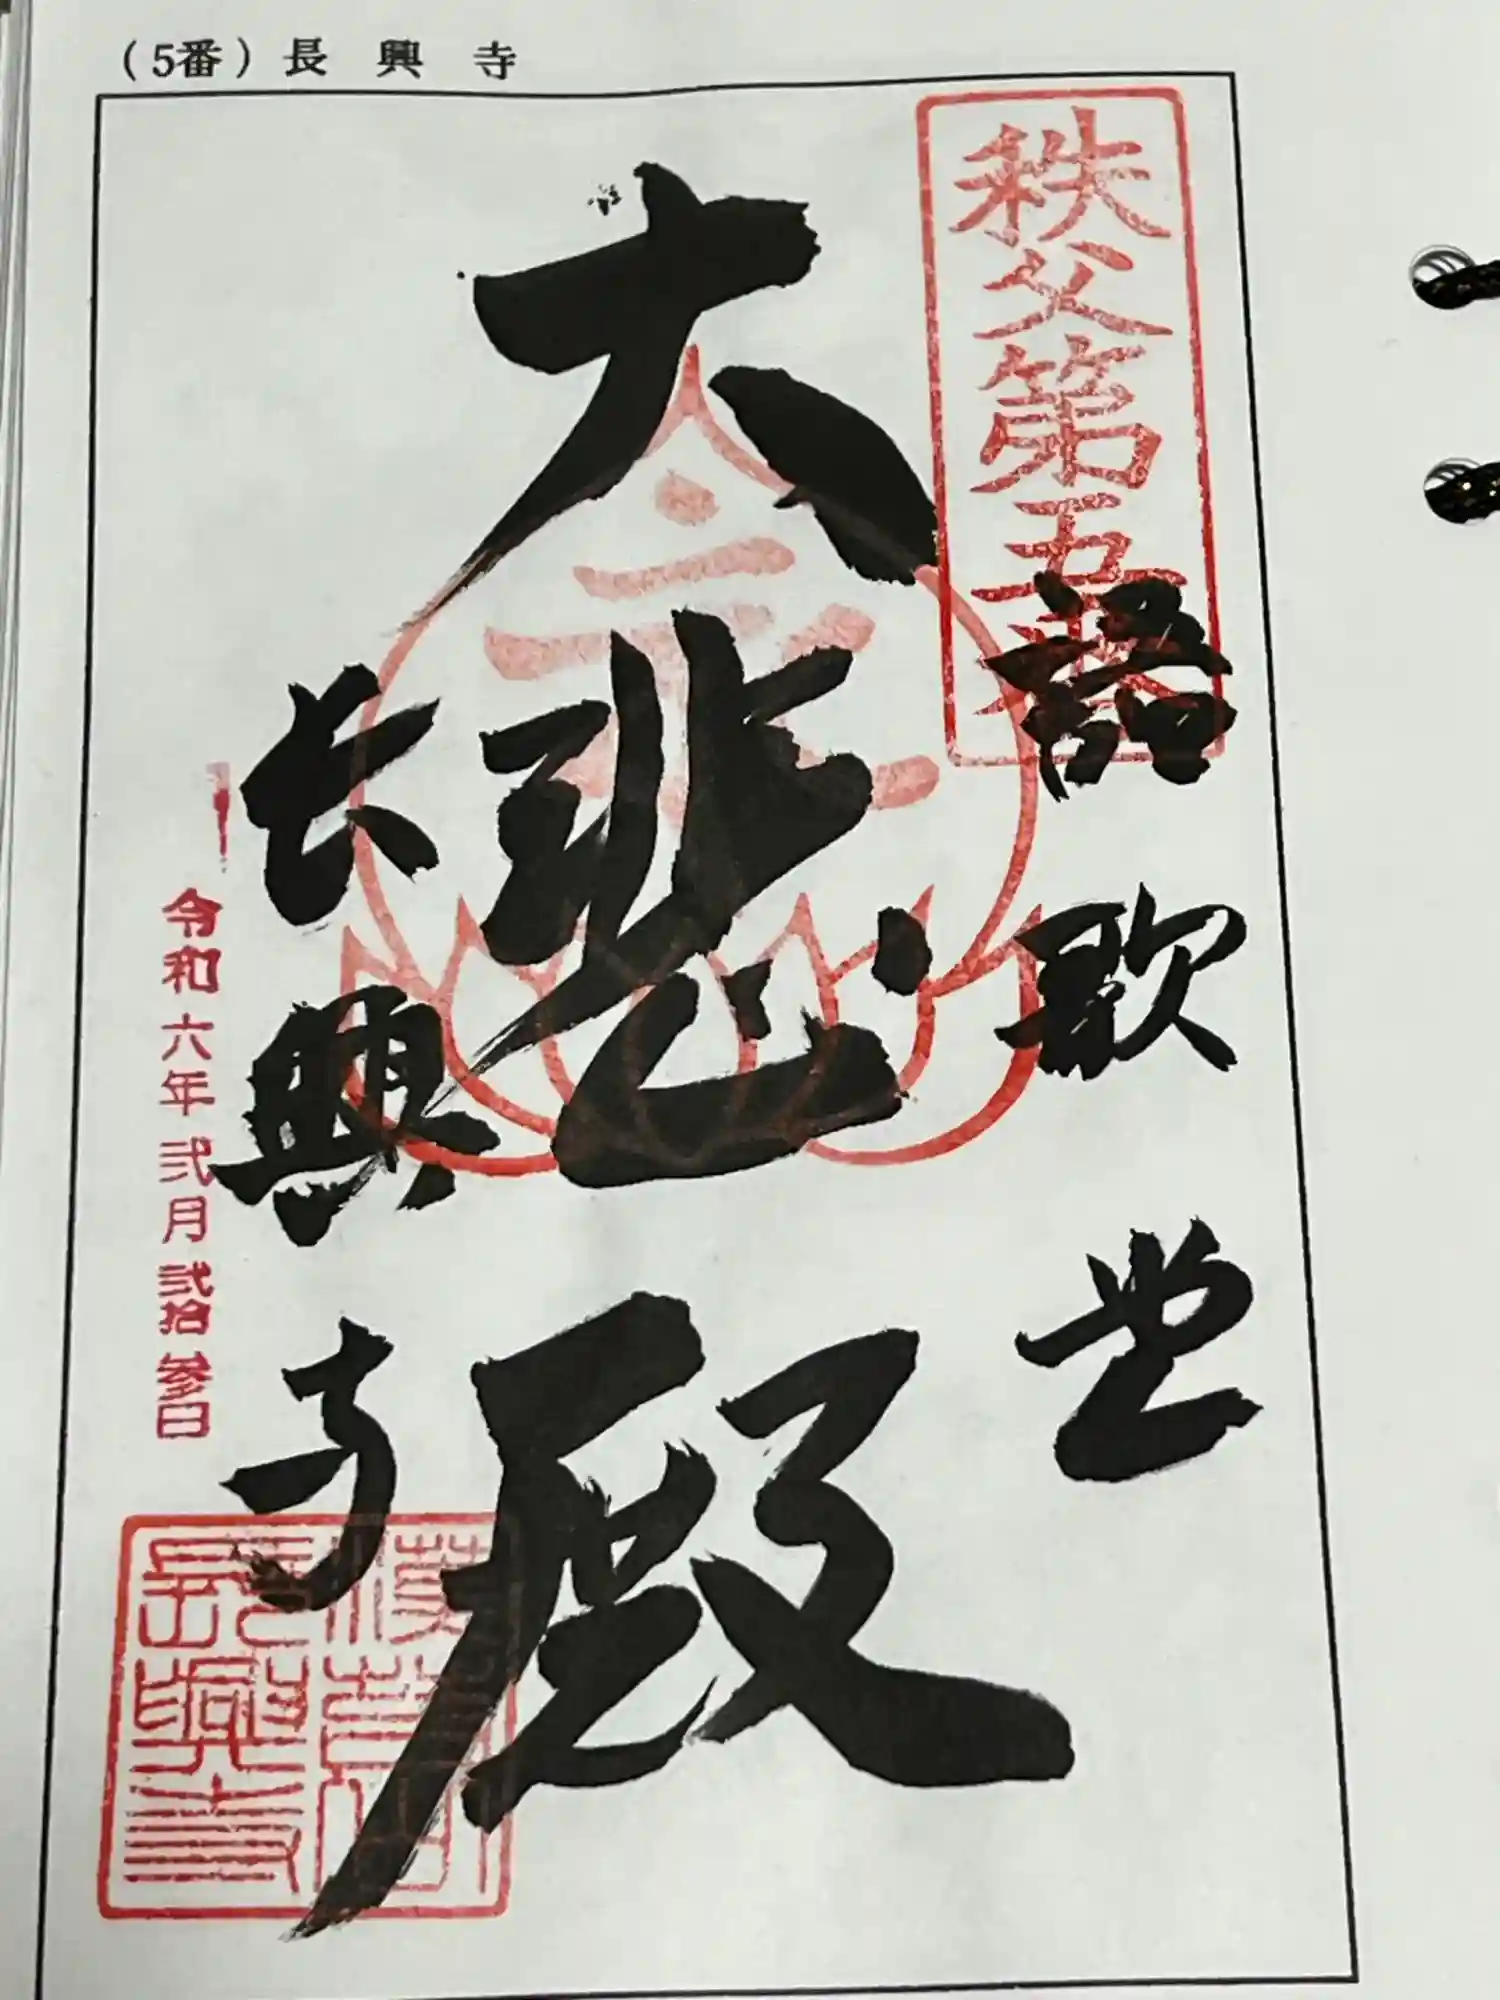 （5番）長興寺
秩父第五番
語歌堂
大悲殿
長興寺
令和六年弐月弐拾参日
長興寺